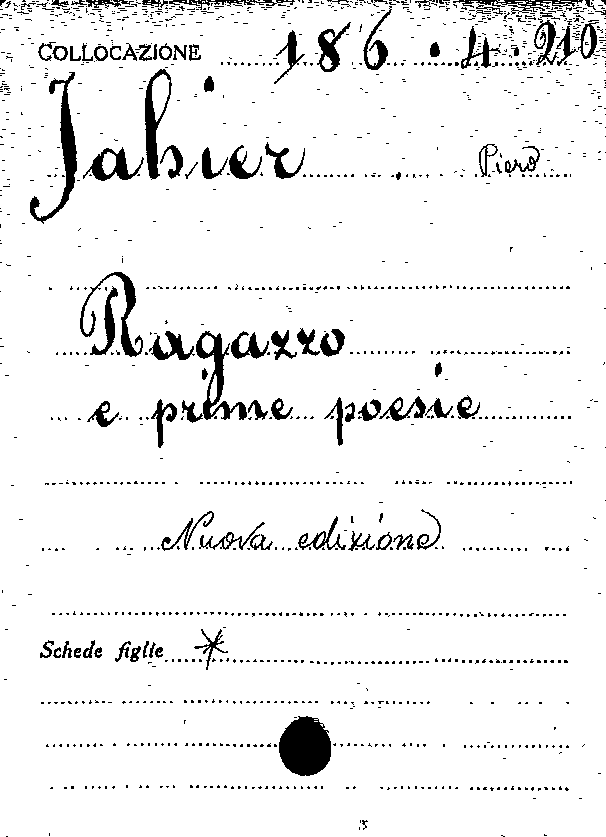 COLLOCAZIONE 186.4.210
Jahier Piero
Ragazzo
e prime poesie
Nuova edizione
Schede figlie *